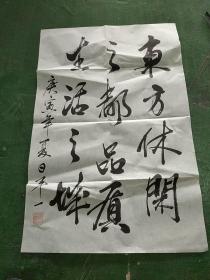 東方休閑
之都品质
生活之城
庚寅年夏日平一